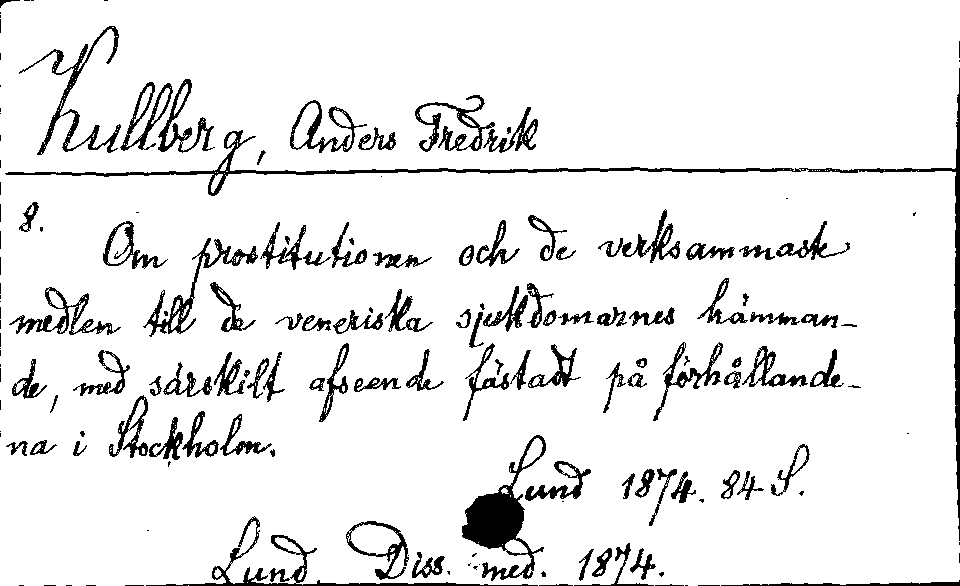 Kullberg, Anders Fredrik
8.
Om prostitutionen och de verksammaste
medlen till de veneriska sjukdomarnes hämman-
de, med särskilt afseende fästadt på förhållande-
na i Stockholm.
Lund 1874. 84 S.
Lund. Diss. med. 1874.